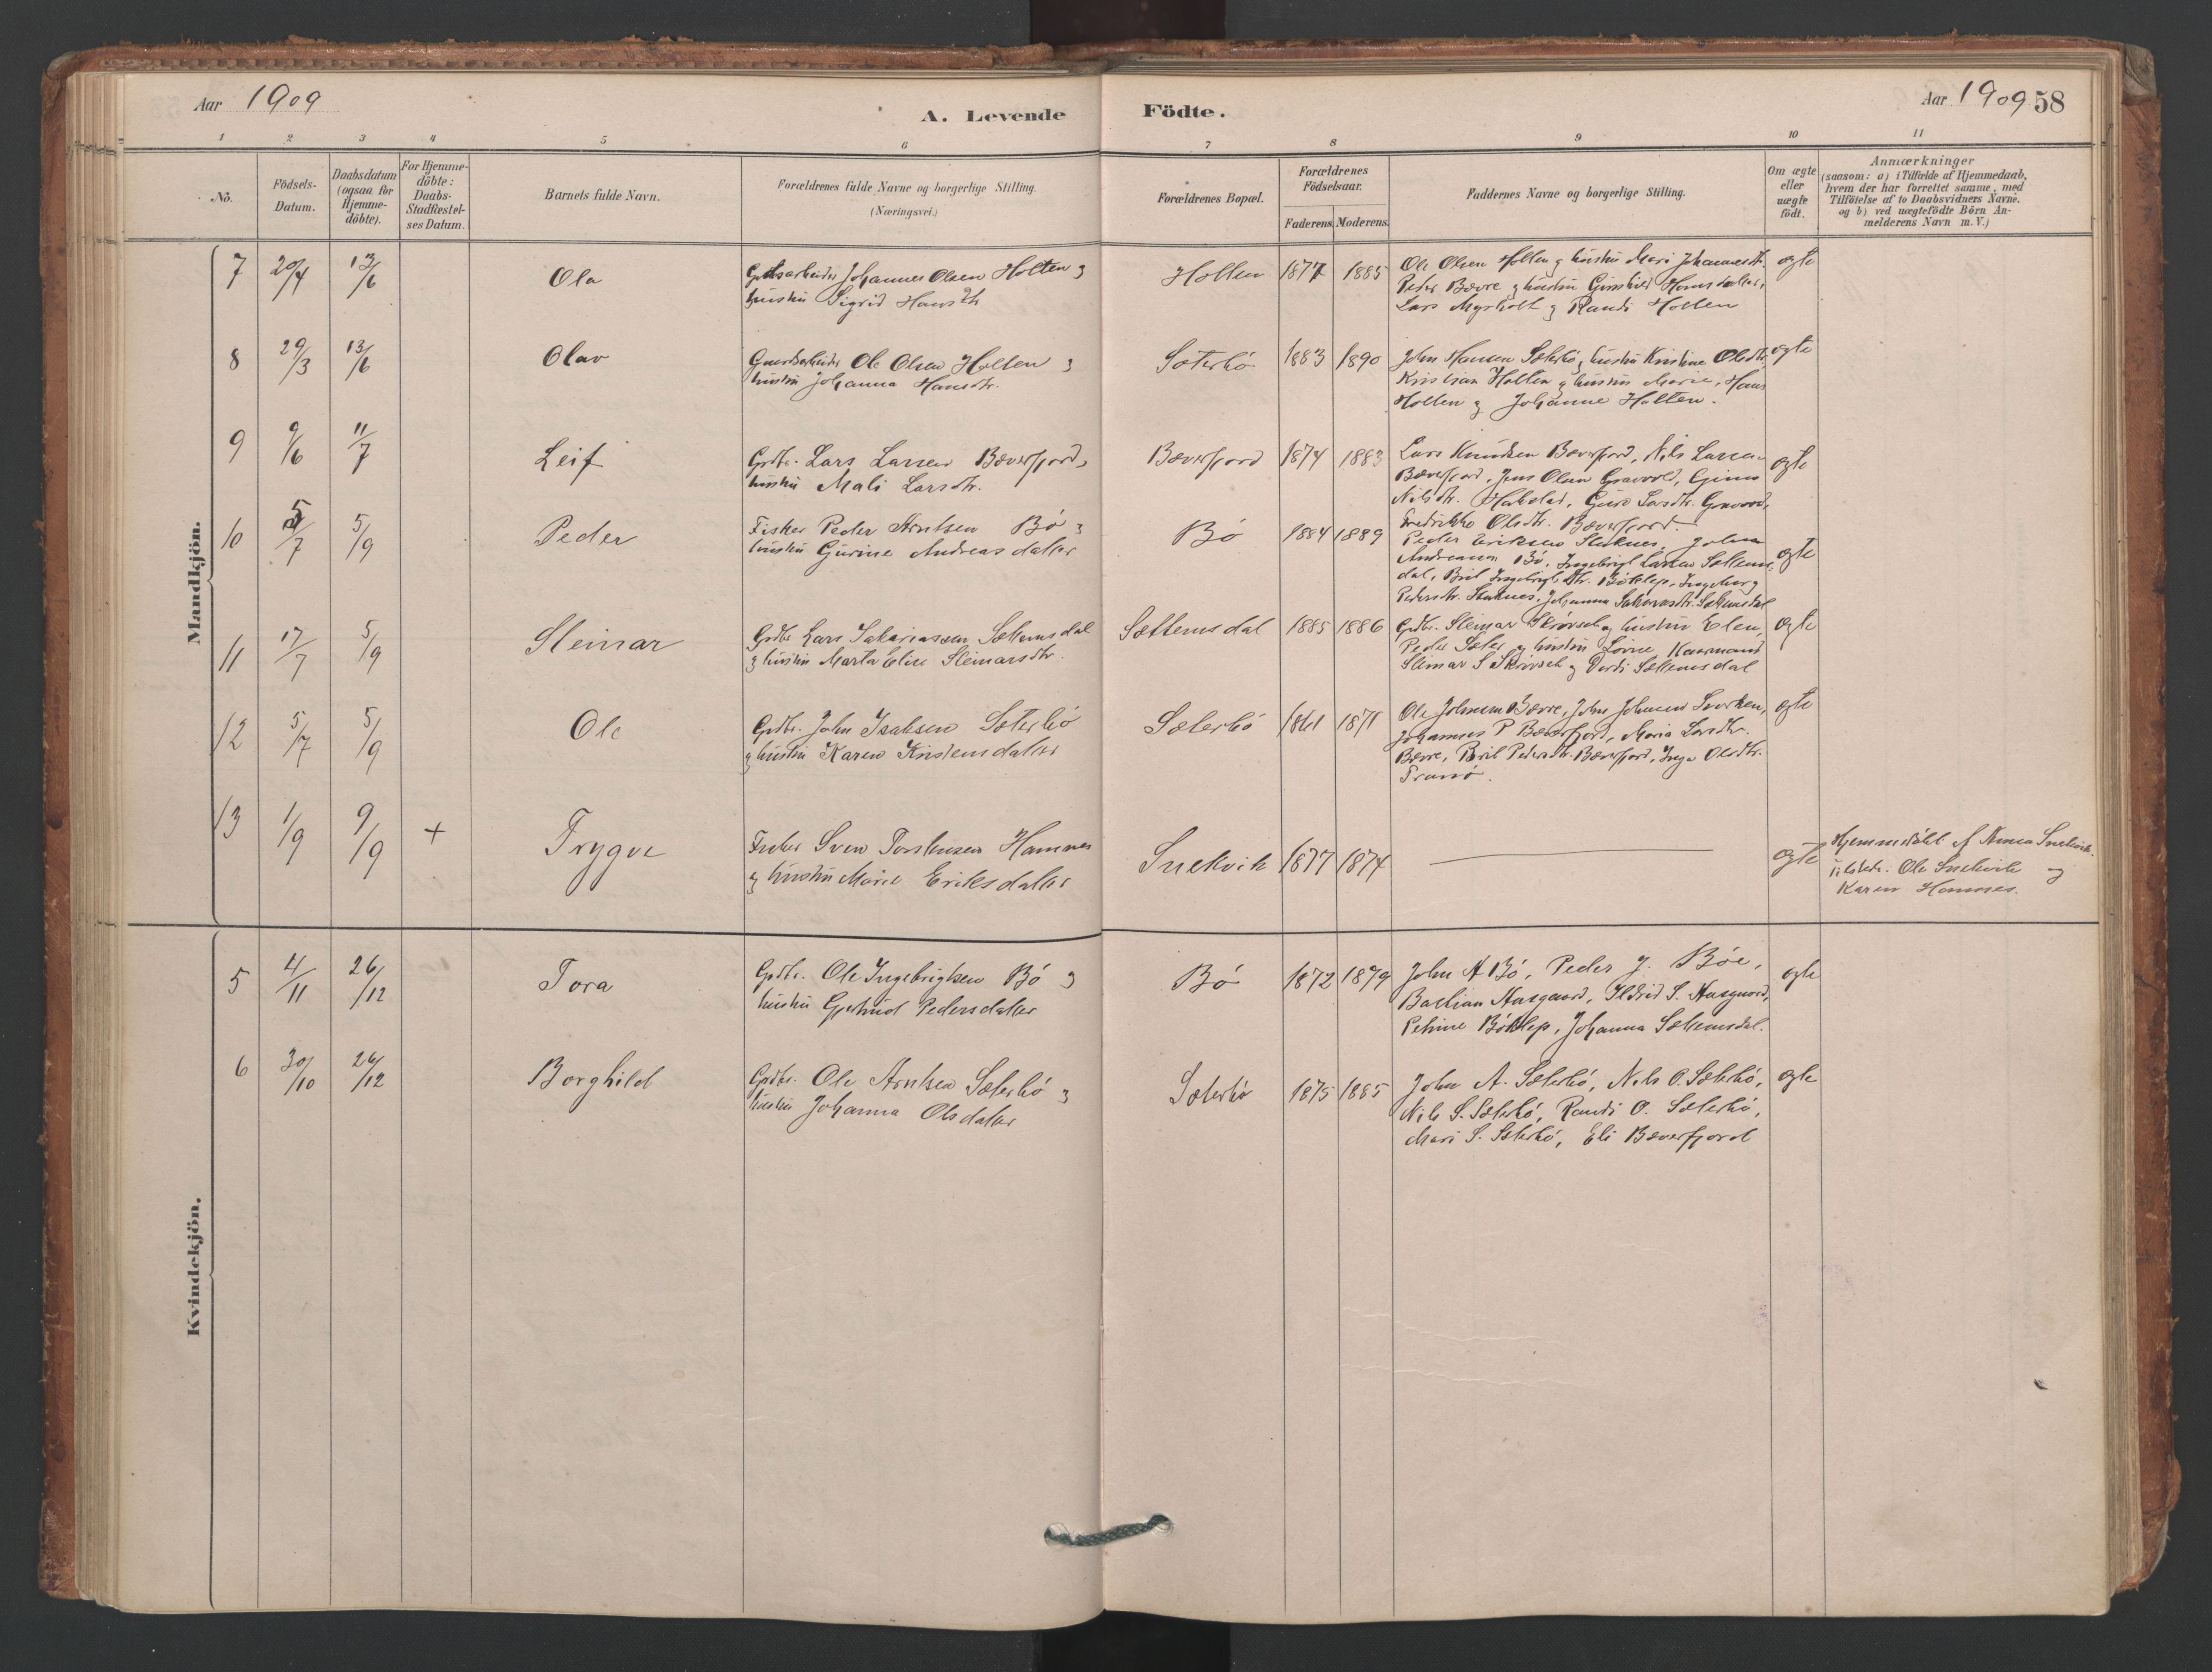 Aar 1909
A. Levende Födte.
Aar 1909 58
1 2 3 4 5 6 7 8 9 10 11
No.
Födsels-Datum.
Daabsdatum (ogsaa for Hjemme-döbte).
For Hjemme-döbte: Daabs-Stadfæstel-ses Datum.
Barnets fulde Navn.
Forældrenes fulde Navne og borgerlige Stilling.
(Næringsvei.)
Forældrenes Bopæl.
Forældrenes Födselsaar.
Faderens. Moderens.
Faddernes Navne og borgerlige Stilling.
Om ægte eller uægte födt.
Anmærkninger
(saasom: a) i Tilfælde af Hjemmedaab,
hvem der har forrettet samme, med
Tilföielse af to Daabsvidners Navne.
og b) ved uægtefödte Börn An-
melderens Navn m.V.)
Mandkjön.
7 20/4 13/6 Ola
Johannes Olsen Holten og
hustru Sigrid Hansdtr
Holten 1877 1885
Ole Olsen Holten og hustru Mari Johannesdtr.
Peder Bævre og hustru Gunhild Hansdatter,
Lars Myrholt og Randi Holten
egte
8 29/3 13/6 Olav
Gaardsarbeider Ole Olsen Holten og
hustru Johanna Hansdtr.
Sæterbö 1883 1890
John Hansen Sæterbö og hustru Kristine Olsdtr,
Kristian Holten og hustru Marie, Hans
Holten og Johanne Holten.
egte
9 9/6 11/7 Leif
Grdbr. Lars Larsen Bæverfjord,
hustru Mali Larsdtr.
Bæverfjord 1874 1883
Lars Knudsen Bæverfjord, Nils Larsen
Bæverfjord, Jens Olsen Gravvold,
Nilsdtr. Guro Larsdtr.
Fredrikke Olsdtr. Bæverfjord.
egte
10 5/7 5/9 Peder
Fisker Peder Arntsen Bö og
hustru Gurine Andreasdatter
Bö 1884 1889
Peder Eriksen Stoknes, Johan
Andreasen Bö, Ingebrigt Larsen Sættems-
dal, Brit Ingebrigtsdtr. Böklep, Ingeborg
Pedersdtr. Stoknes, Johanna Sakariasdtr. Sættemsdal
egte
11 17/7 5/9 Steinar
Grdbr. Lars Sakariassen Sættemsdal
og hustru Marta Elise Steinarsdtr.
Sættemsdal 1885 1886
Grdbr. Steinar Skrövset og hustru Elen,
Peder Sæter og hustru Lovise,
Steinar S Skrövset og Dordi Sættemsdal
egte
12 5/7 5/9 Ole
Grdbr. John Isaksen Sæterbö
og hustru Karen Kristensdatter
Sæterbö 1861 1871
Ole Johnsen Bævre, John Johnsen
Johannes P Bæverfjord, Maria Larsdtr.
Bævre, Brit Pedersdtr. Bæverfjord, Inga Olsdtr.
Tranö.
egte
13 1/9 9/9 + Trygve
Sven Torstensen Hamnes
og hustru Marie Eriksdatter
Snekvik 1877 1874
egte
Hjemmedöbt af Anna Snekvik.
Tilstede. Ole Snekvik og
Karen Hamnes.
Kvindekjön.
5 4/11 26/12 Tora
Grdbr. Ole Ingebrigtsen Bö og
hustru Gjertrud Pedersdatter
Bö 1872 1879
John A Bö, Peder J. Böe,
Bastian Aasgaard, Ildrid S. Aasgaard,
Petrine Böklep, Johanna Sættemsdal.
egte
6 30/10 26/12 Borghild
Grdbr. Ole Arntsen Sæterbö og
hustru Johanna Olsdatter
Sæterbö 1875 1885
John A. Sæterbö, Nils O. Sæterbö,
Nils S. Sæterbö, Randi O. Sæterbö,
Mari S. Sæterbö, Eli Bæverfjord
egte